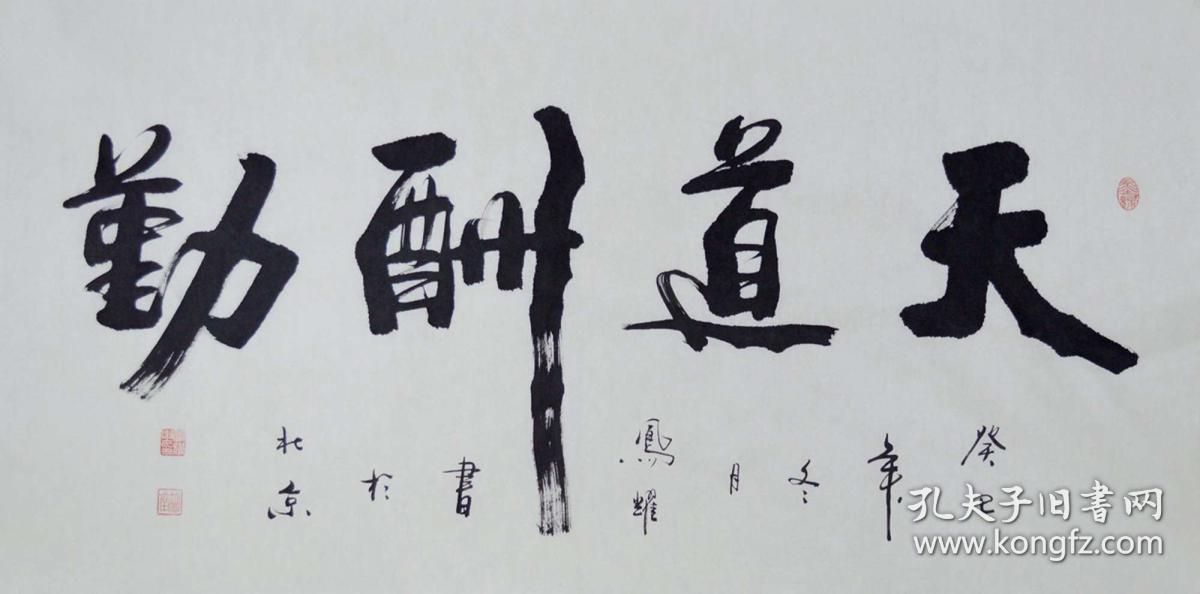 天道酬勤
癸巳年冬月鳳耀書於北京
孔夫子旧书网
www.kongfz.com